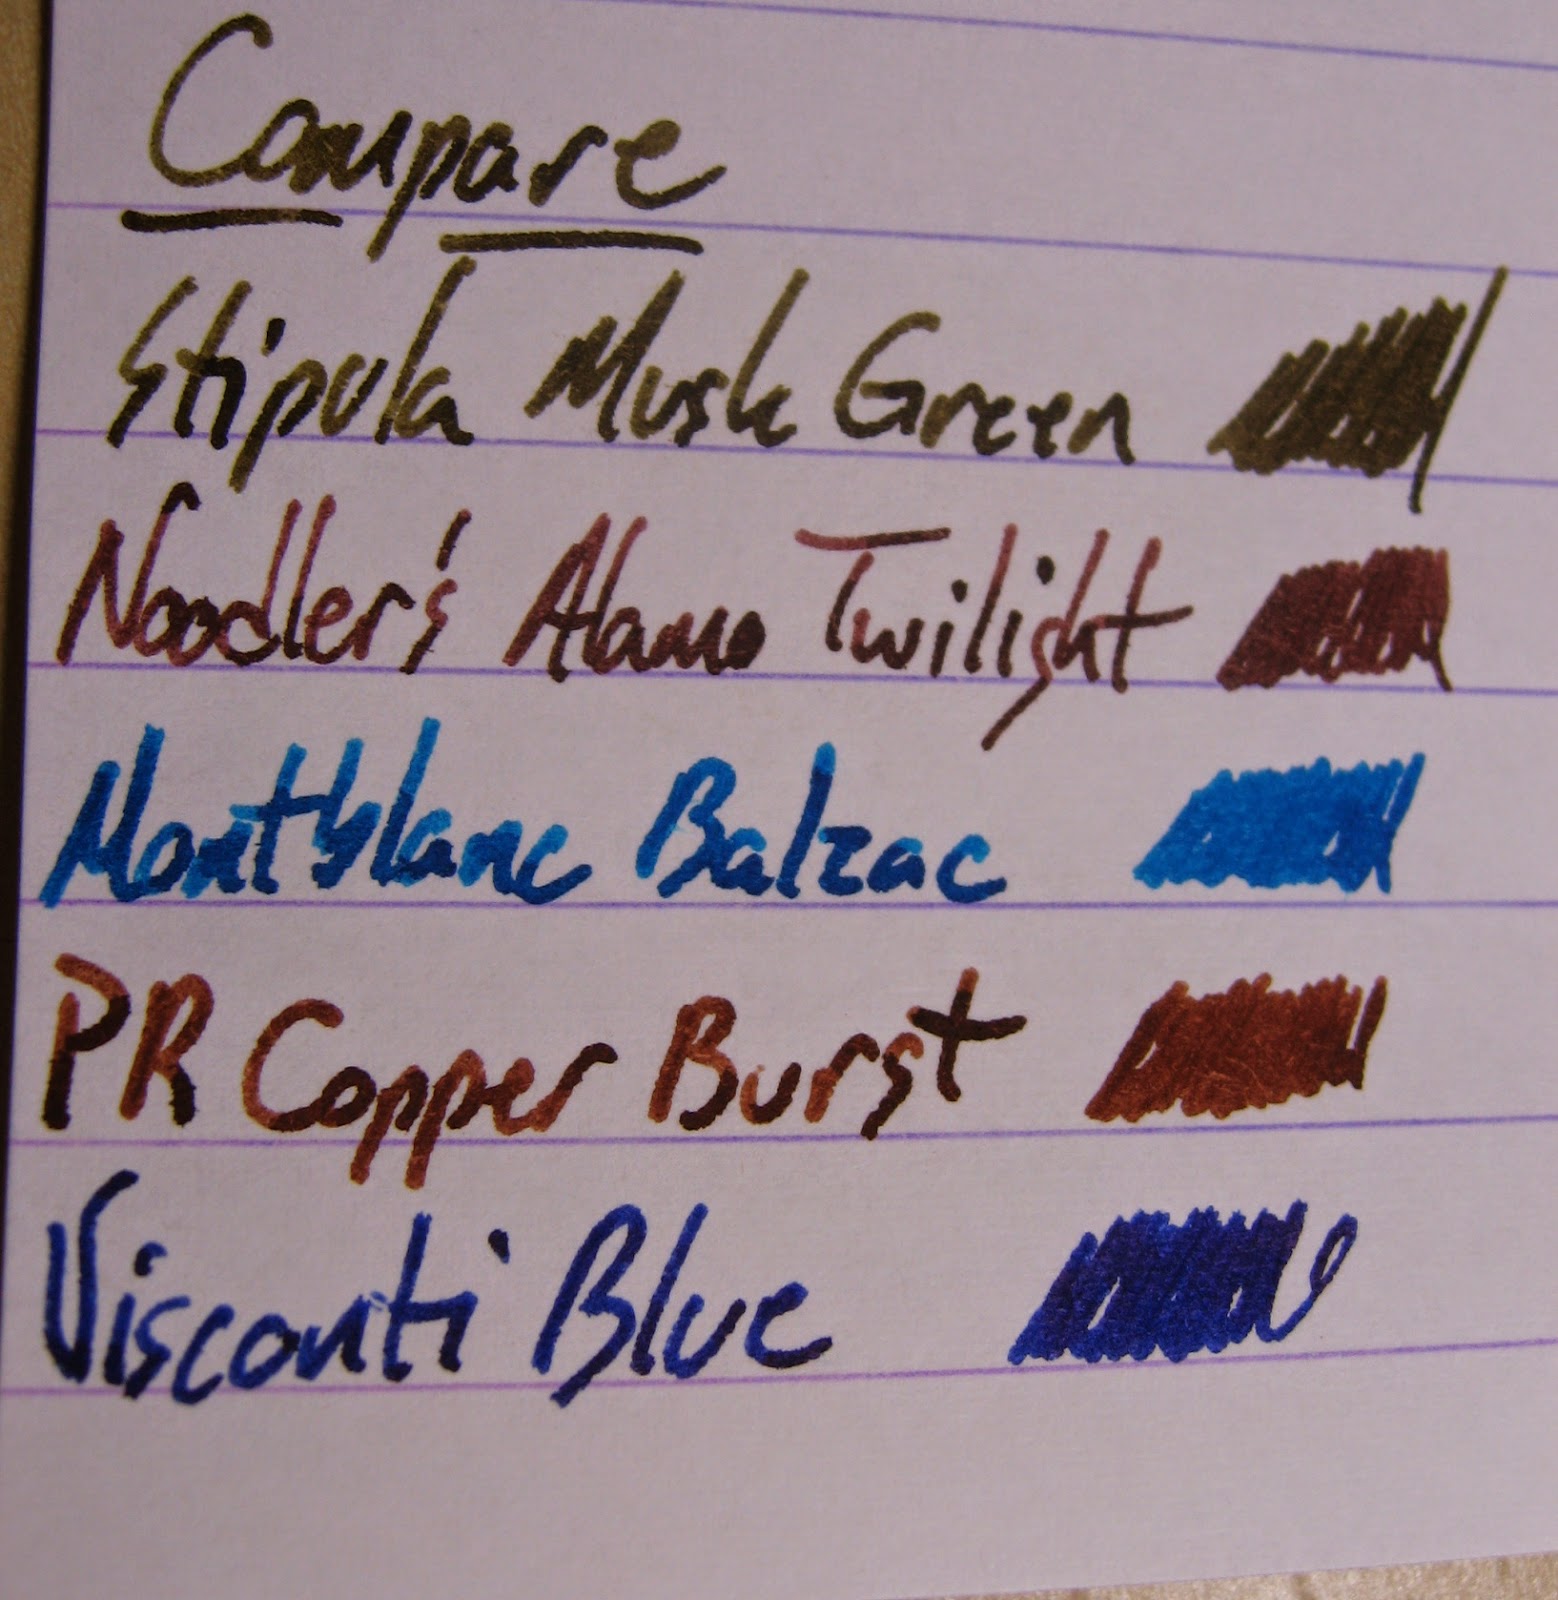 Compare
Stipula Musk Green
Noodler's Alamo Twilight
Montblanc Balzac
PR Copper Burst
Visconti Blue